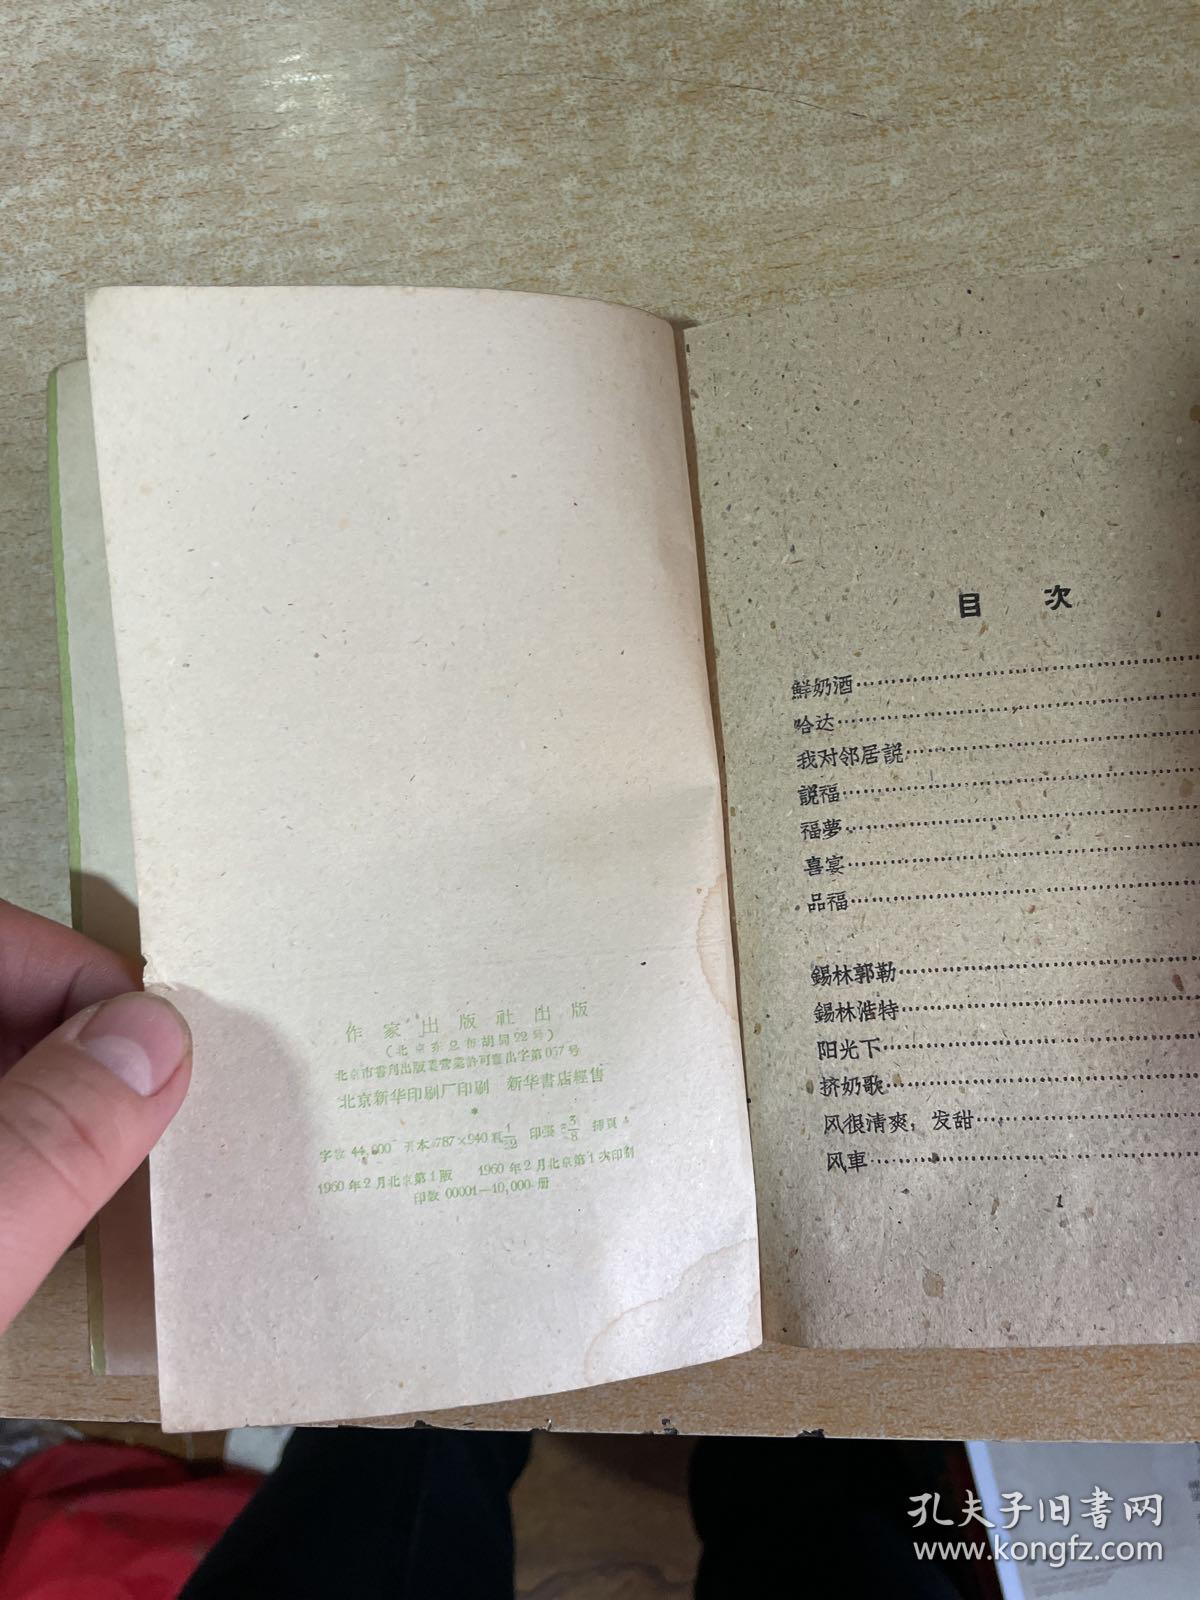 作家出版社出版
(北京东总布胡同22号)
北京市書刊出版業营業許可証出字第057号
北京新华印刷厂印刷 新华書店經售
*
字数 44,000 开本 787×940 印張 3/8 插頁
1960年2月北京第1版 1960年2月北京第1次印刷
印数 00001—10,000册
目次
鮮奶酒
哈达
我对邻居説
説福
福夢
喜宴
品福
錫林郭勒
錫林浩特
阳光下
挤奶歌
风很清爽，发甜
风車
1
孔夫子旧書网
www.kongfz.com